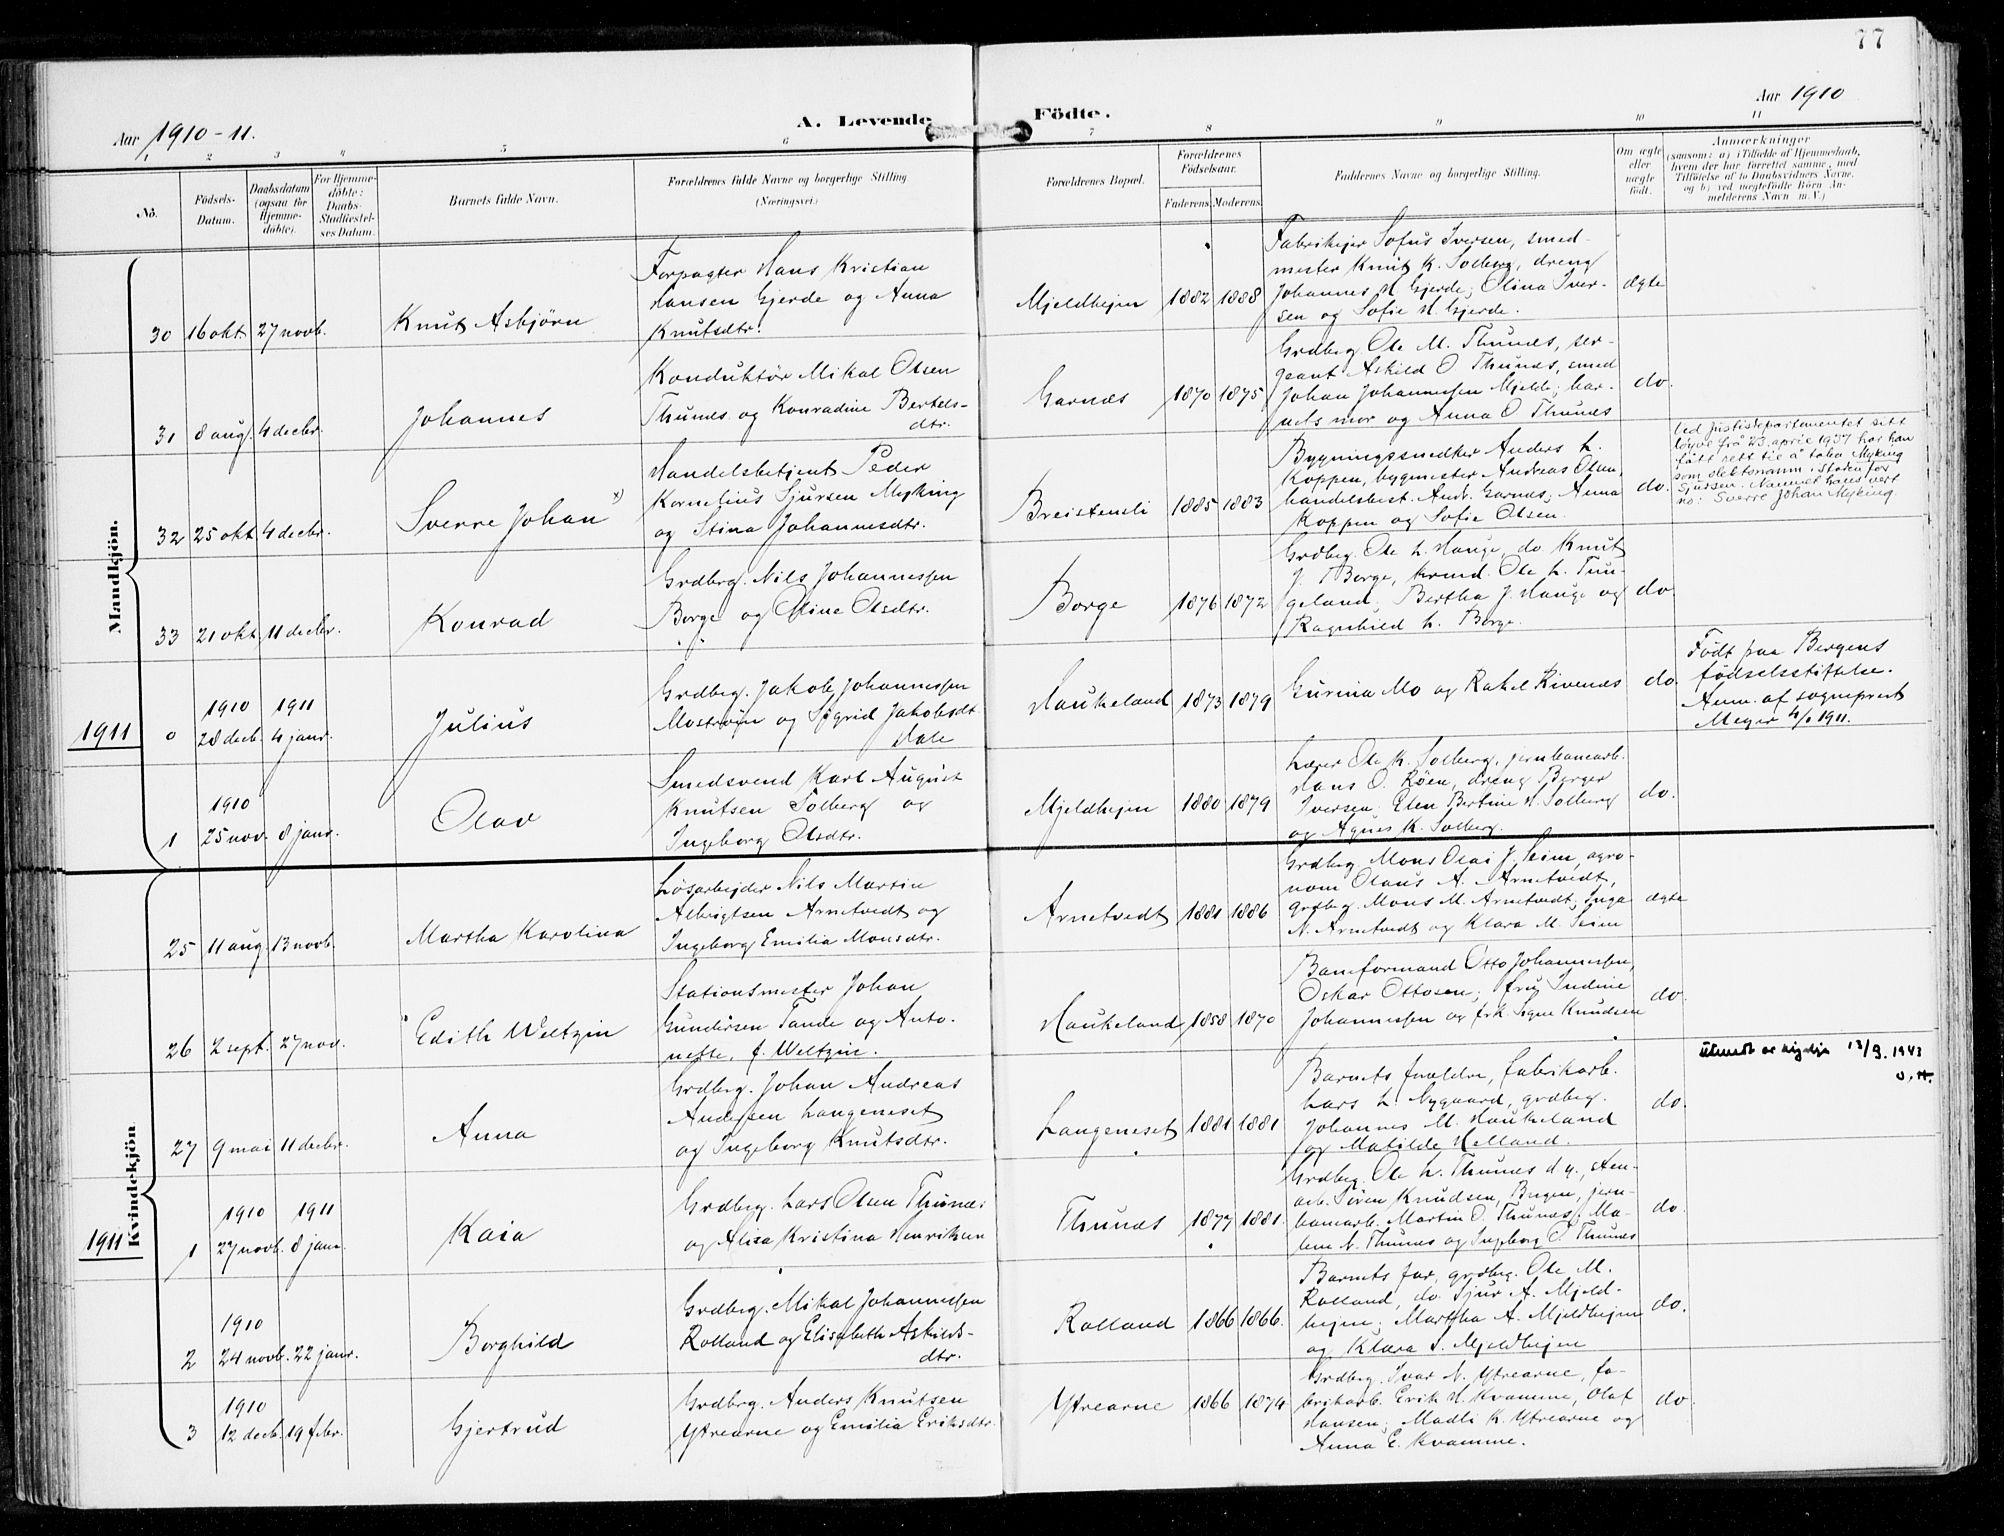 77
Aar 1910-11.
A. Levende
Födte.
Aar 1910
1 2 3 4 5 6 7 8 9 10 11
No.
Födsels-
Datum.
Daabsdatum
(ogsaa for
Hjemme-
döbte).
For Hjemme-
döbte:
Daabs-
Stadfæstel-
ses Datum.
Barnets fulde Navn.
Forældrenes fulde Navne og borgerlige Stilling
(Næringsvei.)
Forældrenes Bopæl.
Forældrenes
Födselsaar.
Faderens. Moderens.
Faddernes Navne og borgerlige Stilling.
Om ægte
eller
uægte
födt.
Anmærkninger
(saasom: a) i Tilfælde af Hjemmedaab,
hvem der har forrettet samme, med
Tilföielse af to Daabsvidners Navne,
og b) ved uægtefödte Börn An-
melderens Navn m. V.)
Mandkjön.
30 16 okt. 27 novb.
Knut Asbjörn
Forpagter Hans Kristian
Hansen Gjerde og Anna
Knutsdtr.
Mjeldhejen 1882 1888
Fabrikejer Sofus Iversen, smed-
mester Knut K. Solberg, dreng
Johannes H Gjerde; Olina Iver-
sen og Sofie H. Gjerde.
ægte
31 8 aug. 4 decbr.
Johannes
Konduktör Mikal Olsen
Thunes og Konradine Bertels-
dtr.
Garnæs 1870 1875
Grdbrg. Ole M. Thunæs, ser-
geant Askild O Thunæs, smed
Johan Johannessen Mjelde; bar-
nets mor og Anna O Thunæs
do.
32 25 okt 4 decbr.
Sverre Johan x)
Handelsbetjent Peder
Kornelius Sjursen Myking
og Stina Johannesdtr.
Breistensli 1885 1883
Bygningssnedker Anders L.
Koppen, bygmester Andreas Olsen,
handelsbest. Andr. Garnæs; Anna
Koppen og Sofie Olsen.
do.
Ved justisdepartementet sitt
löyve frå 23. april 1937 har han
fått rett til å taka Myking
som slektsnamn i staden for
Sjursen. Namnet hans vert
no: Sverre Johan Myking.
33 21 okt. 11 decbr.
Konrad
Grdbrg. Nils Johannessen
Borge og Oline Olsdtr.
Borge 1876 1872
Grdbrg. Ole L. Hauge, do Knut
J. Borge, Ole L. Tun-
geland; Bertha J. Hauge og
Ragnhild L. Borge.
do.
1911
1910 1911
0 28 decb. 4 janr.
Julius
Grdbrg. Jakob Johannessen
Mostrøm og Sigrid Jakobsdt
Dale
Haukeland 1873 1879
Gurina Mo og Rakel Rivenæs
do.
Födt paa Bergens
födselsstiftelse.
Anm. af sogneprest
Meyer 4/1 1911.
1910
1 25 nov. 8 janr.
Olav
Smedsvend Karl August
Knutsen Solberg og
Ingeborg Olsdtr.
Mjeldhejen 1880 1879
Lærer Ole K. Solberg, jernbanearb.
Hans O. Röen, dreng Birger
Iversen; Elen Bertine H. Solberg
og Agnes K. Solberg.
do.
Kvindekjön
25 11 aug. 13 novb.
Martha Karolina
Lösarbejder Nils Martin
Albrigtsen Arnetvedt og
Ingeborg Emilia Monsdtr.
Arnetvedt 1881 1886
Grdbrg. Mons Olai J. Seim, agro-
nom Olaus A. Arnetvedt,
grdbrg. Mons M. Arnetvedt; Inga
N. Arnetvedt og Klara M. Seim
ægte
26 2 sept. 27 nov.
Edith Weltzin
Stationsmester Johan
Gundersen Tande og Anto-
nette, f. Weltzin.
Haukeland 1858 1870
Baneformand Otto Johannessen,
Oskar Ottosen; fru Indine
Johannessen og frk Signe Knudsen
do.
27 9 mai 11 decbr.
Anna
Grdbrg. Johan Andreas
Andersen Langeneset
og Ingeborg Knutsdtr.
Langeneset 1881 1881
Barnets forældre, fabrikarb.
Lars L. Nygaard, grdbrg.
Johannes M. Haukeland
og Matilde Helland.
do.
Utmeldt av kyrkja 13/9. 1943
O.H.
1911
1910 1911
1 27 novb. 8 janr.
Kaia
Grdbrg. Lars Olsen Thunæs
og Alisa Kristina Henriksen
Thunæs 1877 1881.
Grdbrg. Ole L. Thunæs d y., sten-
arb. Sören Knudsen, Bergen, jern-
banearb. Martin O. Thunæs; Ma-
lene N. Thunæs og Ingeborg O Thunæs
do.
1910
2 24 novb. 22 janr.
Borghild
Grdbrg. Mikal Johannessen
Rolland og Elisabeth Askilds-
dtr.
Rolland 1866 1866.
Barnets far, grdbrg. Ole M.
Rolland, do. Sjur A. Mjeld-
hejen; Martha A. Mjeldhejen
og Klara S. Mjeldhejen
do.
1910
3 12 decb. 19 febr.
Gjertrud
Grdbrg. Anders Knutsen
Ytrearne og Emilia Eriksdtr.
Ytrearne 1866 1874
Grdbrg. Ivar N. Ytrearne, fa-
brikarb. Erik H. Kvamme, Olaf
Hansen; Madli K. Ytrearne og
Anna E. Kvamme.
do.